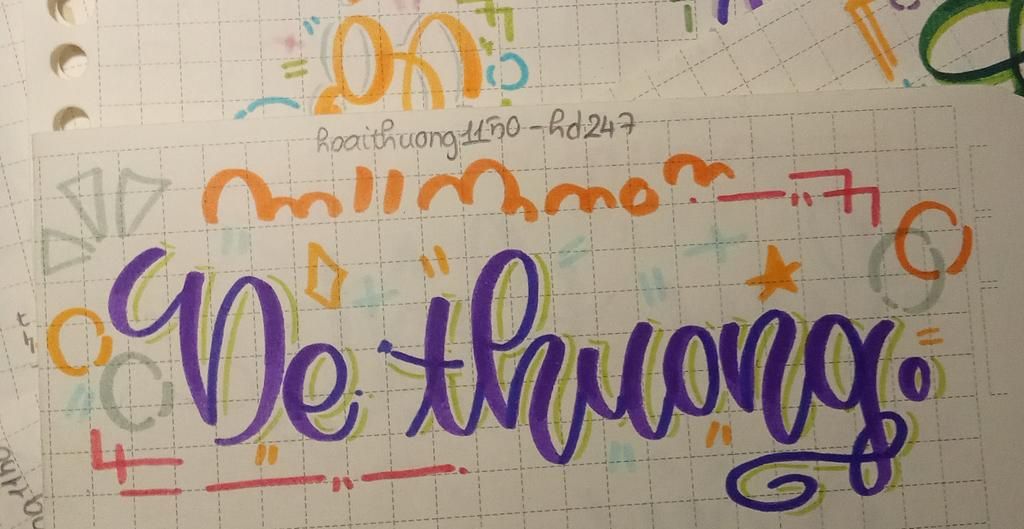 hoaithuong1150-hd247
De thuong